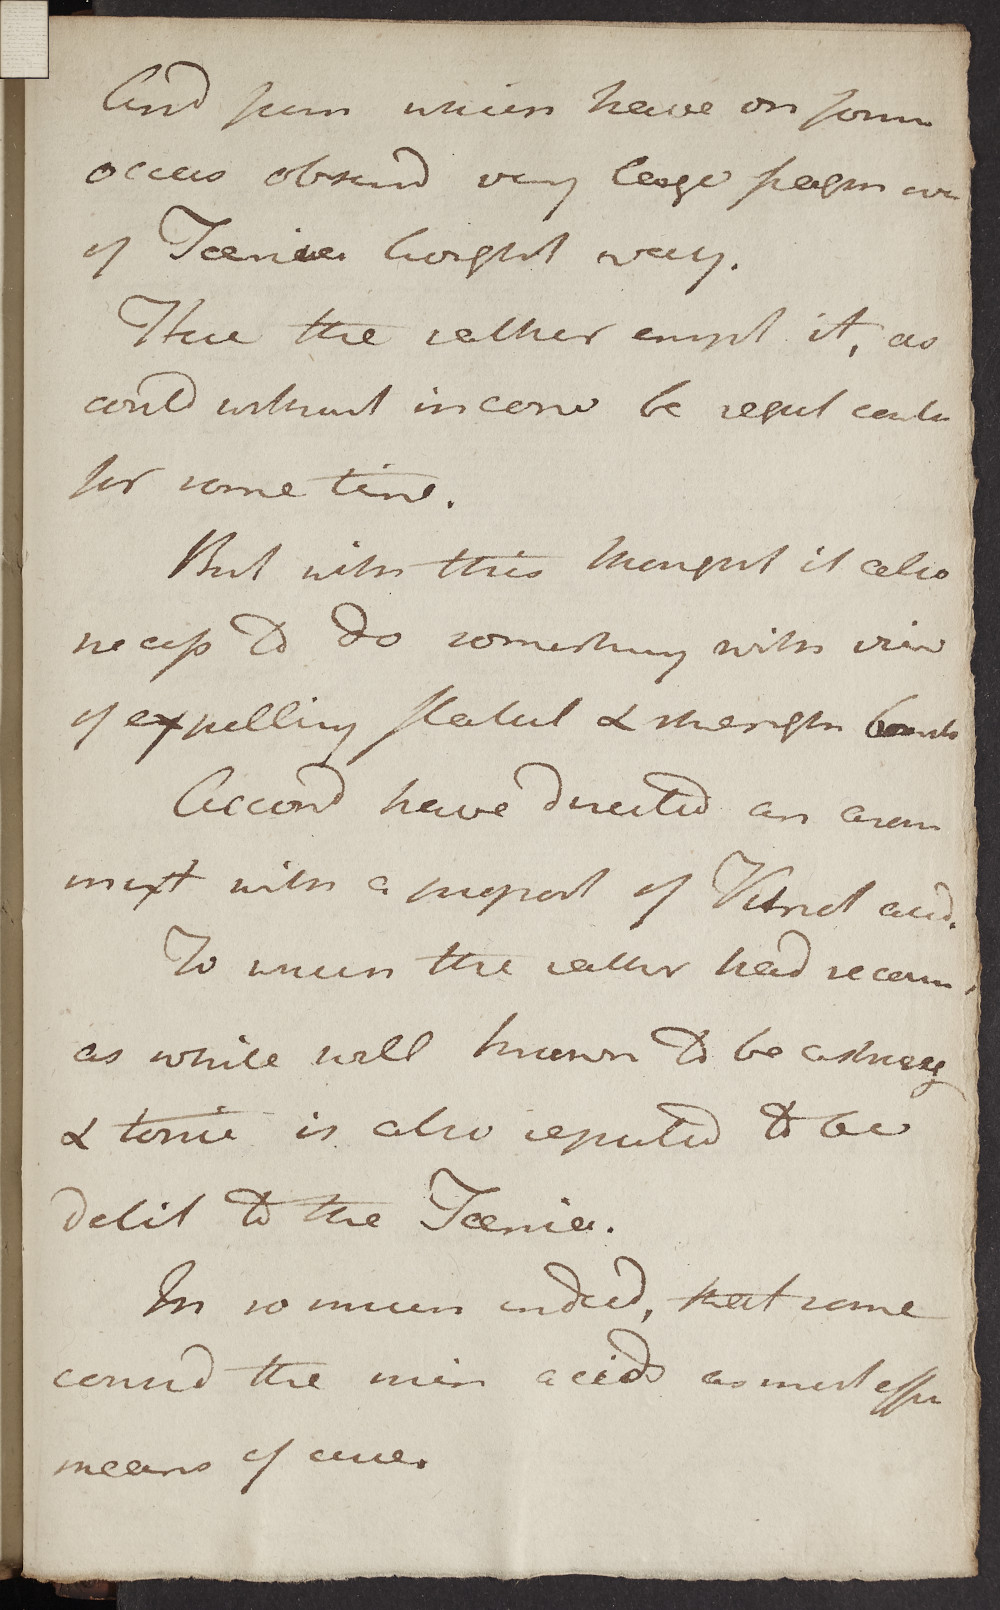 And from which have on form
occas observd very large fragm
of Taenia brought away.
Have the rather empl it, as
could without inconv be regul contin
for some time.
But with this thought it also
necess to do something with view
of expelling flatul & strength bowels
Accord have directed an arom
mixt with a proport of Vitriol acid.
To which the rather had recour,
as while well known to be astring
& tonic is also reputed to be
delet to the Taenia.
In so much indeed, that some
consid the min acids as most effec
means of cure.